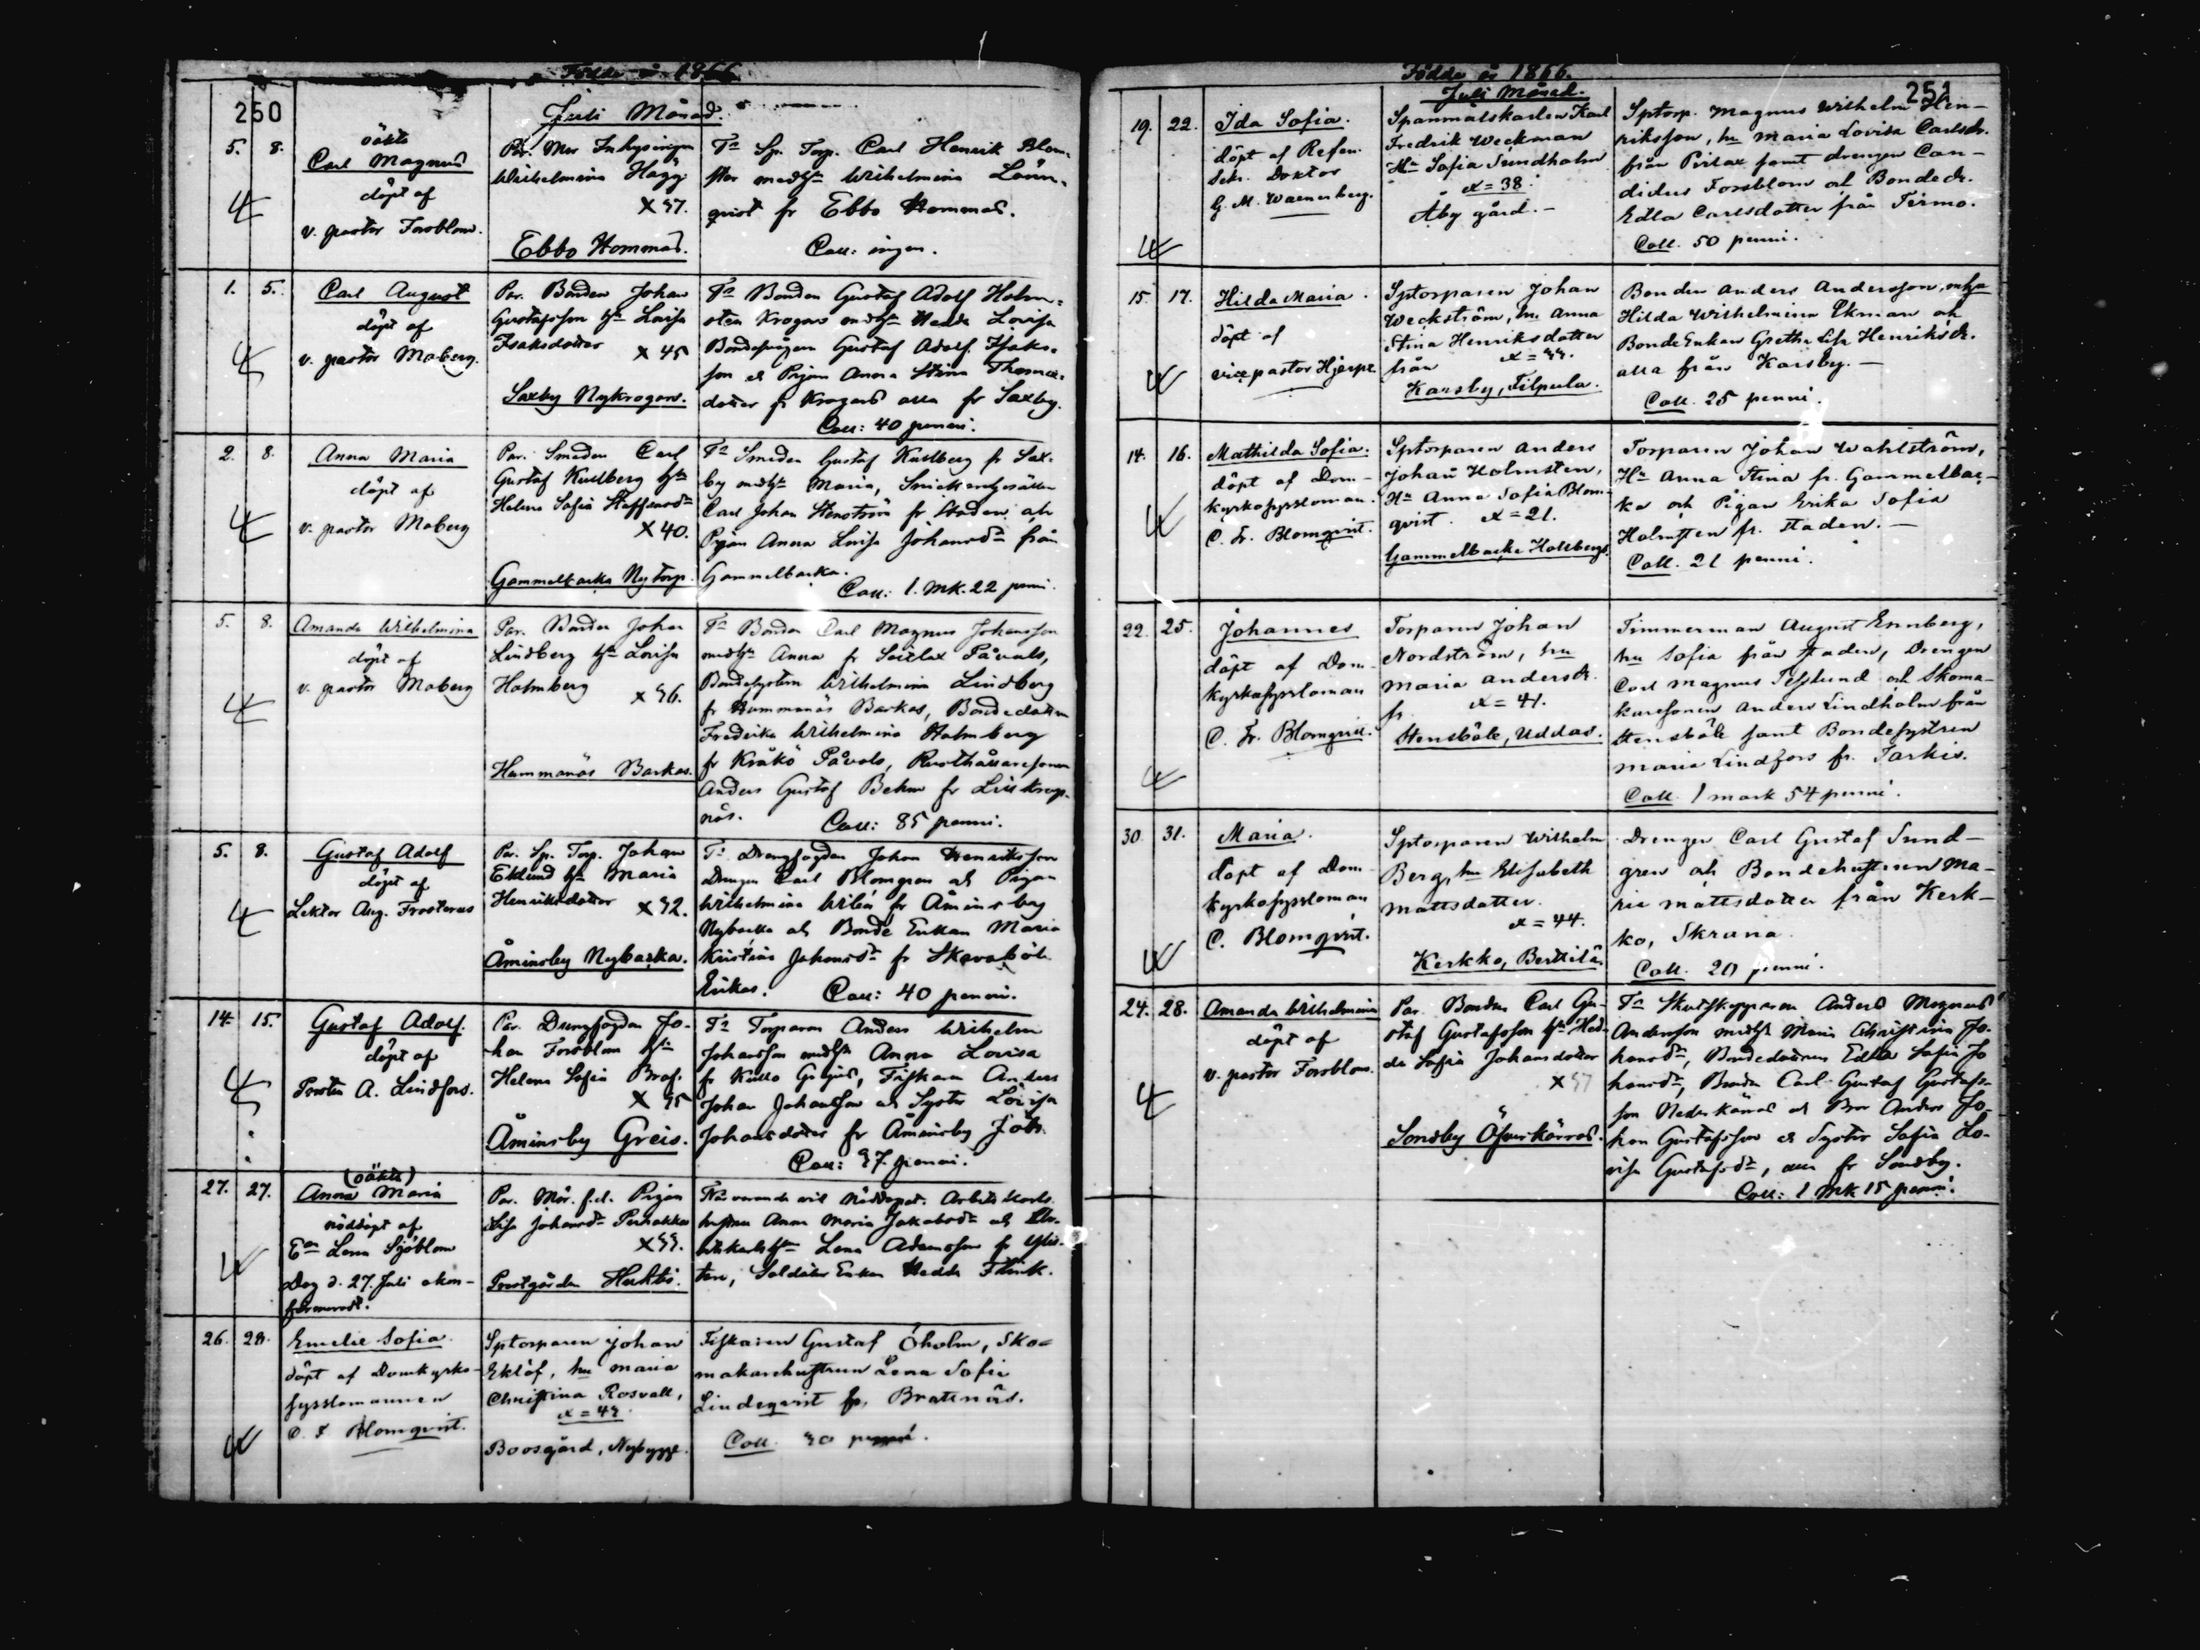 Födde år 1866.
250
Juli Månad.
5. 8.
oäkta
Carl Magnus
döpt af
v. pastor Forsblom.
Par. Mor Inhysingen
Wilhelmina Hägg
Ebbo Hommas.
Tn Sp. Torp. Carl Henrik Blom-
Wilhelmina Lönn-
qvist fr Ebbo Hommas.
Coll: ingen.
1. 5.
Carl August
döpt af
v. pastor Moberg.
Par. Bonden Johan
Gustafsson hn Lovisa
Isaksdotter x 45
Saxby Nykrogars.
Tn Bonden Gustaf Adolf Holm-
sten Krogars medhn Hedda Lovisa
Gustaf Adolf Isaks-
son & Pigan Anna Stina Thomas-
dotter fr Krogars alla fr Saxby.
Coll: 40 penni.
2. 8.
Anna Maria
döpt af
v. pastor Moberg
Par. Smeden Carl
Gustaf Kullberg hn
Helena Sofia Staffansdr
x 40.
Gammelbacka Nytorp.
Tn Smeden Gustaf Kullberg fr Sax-
by medhn Maria, Snickaregesällen
Carl Johan Stenström fr Staden och
Pigan Anna Lovisa Johansdr från
Gammelbacka.
Coll: 1. mk. 22 penni.
5. 8.
Amanda Wilhelmina
döpt af
v. pastor Moberg
Par. Bonden Johan
Lindberg hn Lovisa
Holmberg x 36.
Hammanäs Barkas.
Tn Bonden Carl Magnus Johansson
medhn Anna fr Seitlax Påvals,
Bondesystern Wilhelmina Lindberg
fr Hammanäs Barkas, Bondedottern
Fredrika Wilhelmina Holmberg
fr Kråkö Påvals, Rusthållaresonen
Anders Gustaf Behm fr
näs. Coll: 85 penni.
5. 8.
Gustaf Adolf
döpt af
Lektor Aug. Frosterus
Par. Sp. Torp. Johan
Eklund hn Maria
Henriksdotter x 32.
Åminsby Nybacka.
Tn Drengfogden Johan Henriksson
Drengen Carl Blomgren och Pigan
Wilhelmina fr Åminsby
Nybacka och Bonde Enkan Maria
Kristina Johansdr fr Skavaböle
Erikas. Coll: 40 penni.
14. 15.
Gustaf Adolf.
döpt af
Prosten A. Lindfors.
Par. Drengfogden Jo-
han Forsblom hn
Helena Sofia Braf.
x 35
Åminsby Greis.
Tn Torparen Anders Wilhelm
Johansson medhn Anna Lovisa
fr Kullo, Fiskaren Anders
Johan Johansson och Syster Lovisa
Johansdotter fr Åminsby
Coll: 37 penni.
27. 27.
(oäkta)
Anna Maria
nöddöpt af
En Lena Sjöblom
Dog d. 27. Juli okon-
firmerad.
Par. Mor. f.d. Pigan
Lisa Johansdr
x 33.
Prostgården
Närvarande vid nöddopet: Arbets karls
hustrun Anna Maria Jakobsdr och Ar-
betskarlshn Lena Adamsson fr
Soldats Enkan Hedda Flink.
26. 28.
Emelie Sofia
döpt af Domkyrko-
sysslomannen
C. F Blomqvist.
Sptorparen Johan
Eklöf, hu Maria
Christina Rosvall,
x = 43.
Boosgård, Nybygge.
Fiskaren Gustaf Öholm, Sko-
makarehustrun Lena Sofia
Lindeqvist fr. Brattnäs.
Coll. 30 penni.
Födde år 1866.
251
Juli Månad.
19. 22.
Ida Sofia.
döpt af Refer.
Sekr. Doktor
G. M. Waenerberg.
Spanmålskarlen Karl
Fredrik Weckman
Hn Sofia Sundholm
x = 38.
Åby gård.
Sptorp. Magnus Wilhelm Hen-
riksson, hu Maria Lovisa Carlsdr.
från Pirlax samt drengen Can-
didus Forsblom och Bondedr.
Edla Carlsdotter från Tirmo.
Coll. 50 penni.
15. 17.
Hilda Maria.
döpt af
vice pastor Hjerpe
Sptorparen Johan
Weckström, hu Anna
Stina Henriksdotter
från x = 33.
Karsby, Filpula.
Bonden Anders Andersson, mhu
Hilda Wilhelmina Ekman och
Bonde Enkan Gretha Lisa Henriksdr.
alla från Karsby.
Coll. 25 penni.
14. 16.
Mathilda Sofia.
döpt af Dom-
kyrkosyssloman
C. Fr. Blomqvist.
Sptorparen Anders
Johan Holmsten,
Hn Anna Sofia Blom-
qvist. x = 21.
Gammelbacka Holsbergs
Torparen Johan Wahlström,
Hn Anna Stina fr. Gammelbac-
ka och Pigan Erika Sofia
Holmsten fr. staden.
Coll. 21 penni.
22. 25.
Johannes
döpt af Dom-
kyrkosyssloman
C. Fr. Blomqvist.
Torparen Johan
Nordström, hu
Maria Andersdr.
fr. x = 41.
Stensböle, Uddas.
Timmerman August Ennberg,
hu Sofia från staden, Drengen
Carl Magnus och Skoma-
karesonen Anders Lindholm från
Stensböle samt Bondesystern
Maria Lindfors fr. Tarkis.
Coll. 1 mark 54 penni.
30. 31.
Maria.
döpt af Dom-
kyrkosyssloman
C. Blomqvist.
Sptorparen Wilhelm
Berg, hu Elisabeth
Mattsdotter.
x = 44.
Kerkko, Bertilä
Drengen Carl Gustaf Sund-
gren och Bondehustrun Ma-
ria Mattsdotter från Kerk-
ko, Skruna.
Coll. 20 penni.
24. 28.
Amanda Wilhelmina
döpt af
v. pastor Forsblom.
Par. Bonden Carl Gu-
staf Gustafsson hn Hed-
da Sofia Johansdotter
x 37
Sondby Öfverkärras.
Tn Skutskepparen Anders Magnus
Andersson medhn Maria Christina Jo-
hansdr, Bondedottren Edla Sofia Jo
hansdr, Bonden Carl Gustaf Gustafs-
son Nederkärras och Bror Anders Jo-
han Gustafsson & Syster Sofia Lo-
visa Gustafsdr, alla fr Sondby.
Coll: 1 mk 15 penni.